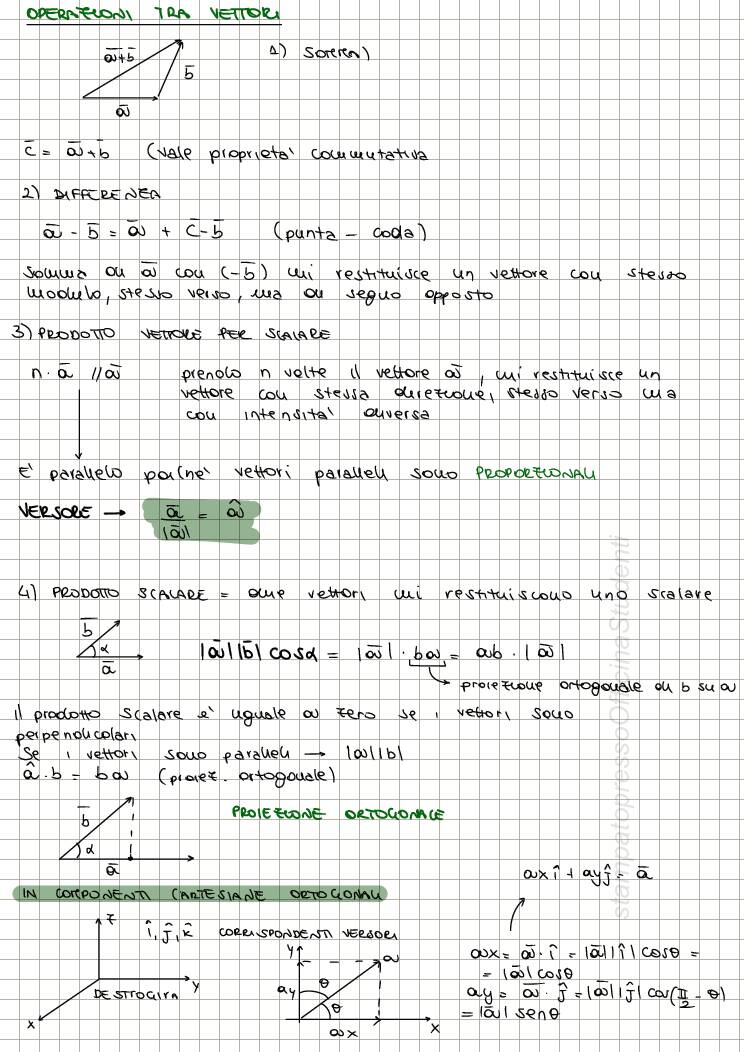 OPERAZIONI TRA VETTORI
a̅+b̅
b̅
a̅
1) SOMMA)
c̅ = a̅+b̅ (vale proprieta' commutativa
2) DIFFERENZA
a̅ - b̅ = a̅ + (-b̅) (punta - coda)
somma di a̅ con (-b̅) mi restituisce un vettore con stesso
modulo, stesso verso, ma di segno opposto
3) PRODOTTO VETTORE PER SCALARE
n · a̅ // a̅ prendo n volte il vettore a̅, mi restituisce un
vettore con stessa direzione, stesso verso ma
con intensita' diversa
E' parallelo poiche' vettori paralleli sono PROPORZIONALI
VERSORE → a̅/|a̅| = â
4) PRODOTTO SCALARE = due vettori mi restituiscono uno scalare
b̅
α
a̅
|a̅||b̅| cosα = |a̅| · ba = ab · |a̅|
proiezione ortogonale di b su a
il prodotto scalare e' uguale a zero se i vettori sono
perpendicolari
Se i vettori sono paralleli → |a||b|
â · b = ba (proiez. ortogonale)
b̅
α
a̅
PROIEZIONE ORTOGONALE
ax î + ay ĵ = a̅
IN COMPONENTI CARTESIANE ORTOGONALI
z
î, ĵ, k̂ CORRISPONDENTI VERSORI
y
x
DESTROGIRA
y
a
ay
θ
θ
ax
x
ax = a̅ · î = |a̅||î| cosθ =
= |a̅| cosθ
ay = a̅ · ĵ = |a̅||ĵ| cos(π/2 - θ)
= |a̅| senθ
stampatopressoOfficinaStudenti